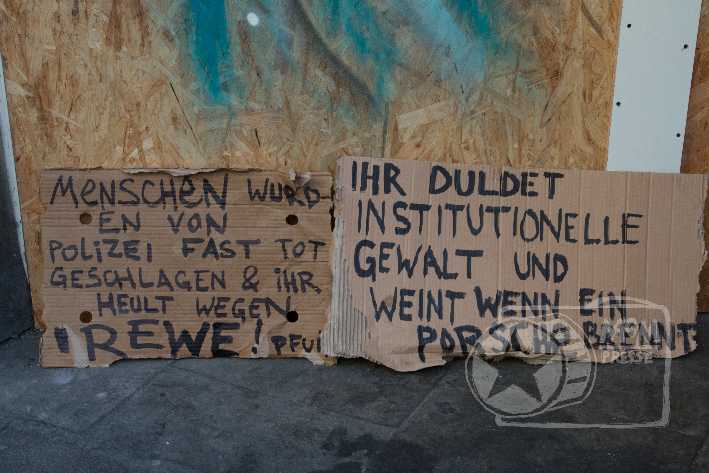 MENSCHEN WURD-
EN VON
POLIZEI FAST TOT
GESCHLAGEN & IHR
HEULT WEGEN
! REWE! PFUI
IHR DULDET
INSTITUTIONELLE
GEWALT UND
WEINT WENN EIN
PORSCHE BRENNT
PRESSE